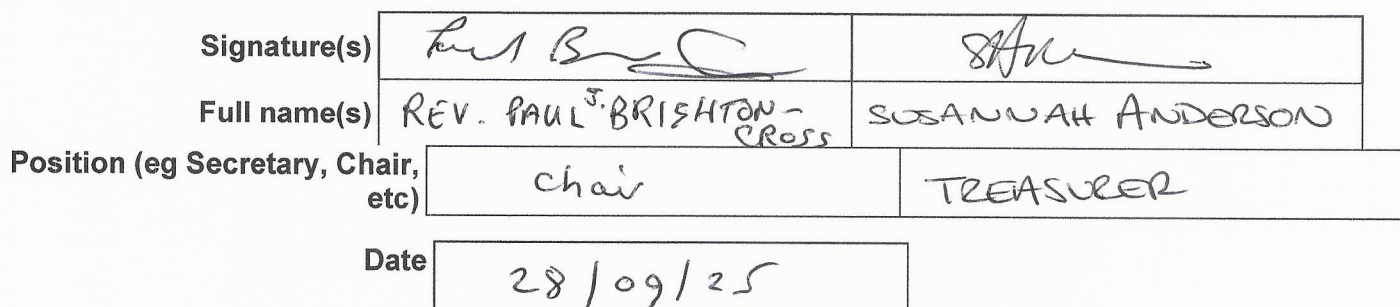 Signature(s)
Full name(s) REV. PAUL J. BRIGHTON- SUSANNAH ANDERSON
CROSS
Position (eg Secretary, Chair, Chair TREASURER
etc)
Date 28/09/25